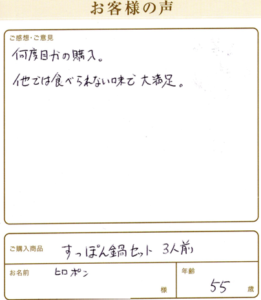 お客様の声
ご感想・ご意見
何度目かの購入。
他では食べられない味で大満足。
ご購入商品
すっぽん鍋セット 3人前
お名前
ヒロポン
様
年齢
55
歳